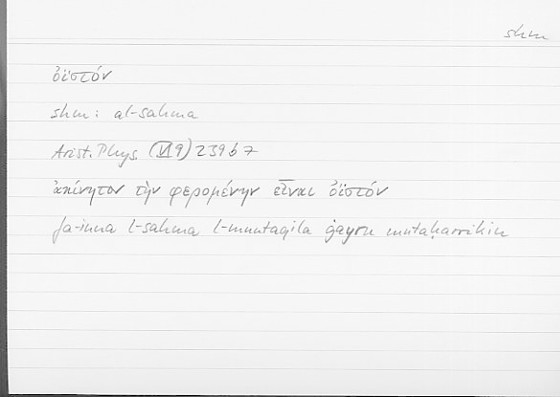 shm
ὀϊστόν
shm: al-sahma
Arist. Phys. (VI 9) 239 b 7
ἀκίνητον τὴν φερομένην εἶναι ὀϊστόν
fa-inna l-sahma l-muntaqila ġayru mutaḥarrikin